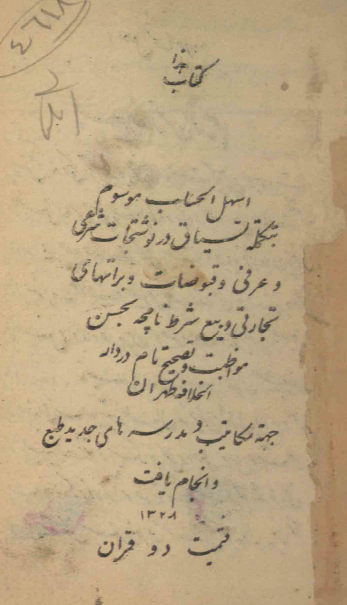 ۴۶۱۸
کتاب هذا
اسهل الحساب موسوم
بتکمله سیاق در نوشتجات شرعی
و عرفی و قبوضات و براتهای
تجارتی و بیع شرط نامچه بحسن
مواظبت و تصحیح تام در دار
الخلافه طهران
جهة مکاتیب و مدرسه های جدید طبع
و انجام یافت
۱۳۲۸
قیمت دو قران